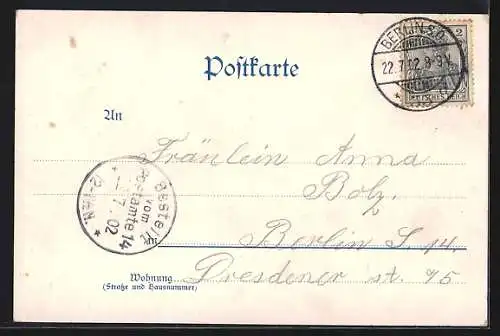 BERLIN S.O.
22.7.02.8-9V.
2
Postkarte
An
Fräulein Anna
Bolz.
Bestellt
vom
Postamte 14
7.02
12-1/4N.
in Berlin S. 14.
Wohnung Dresdener st. 75
(Straße und Hausnummer)